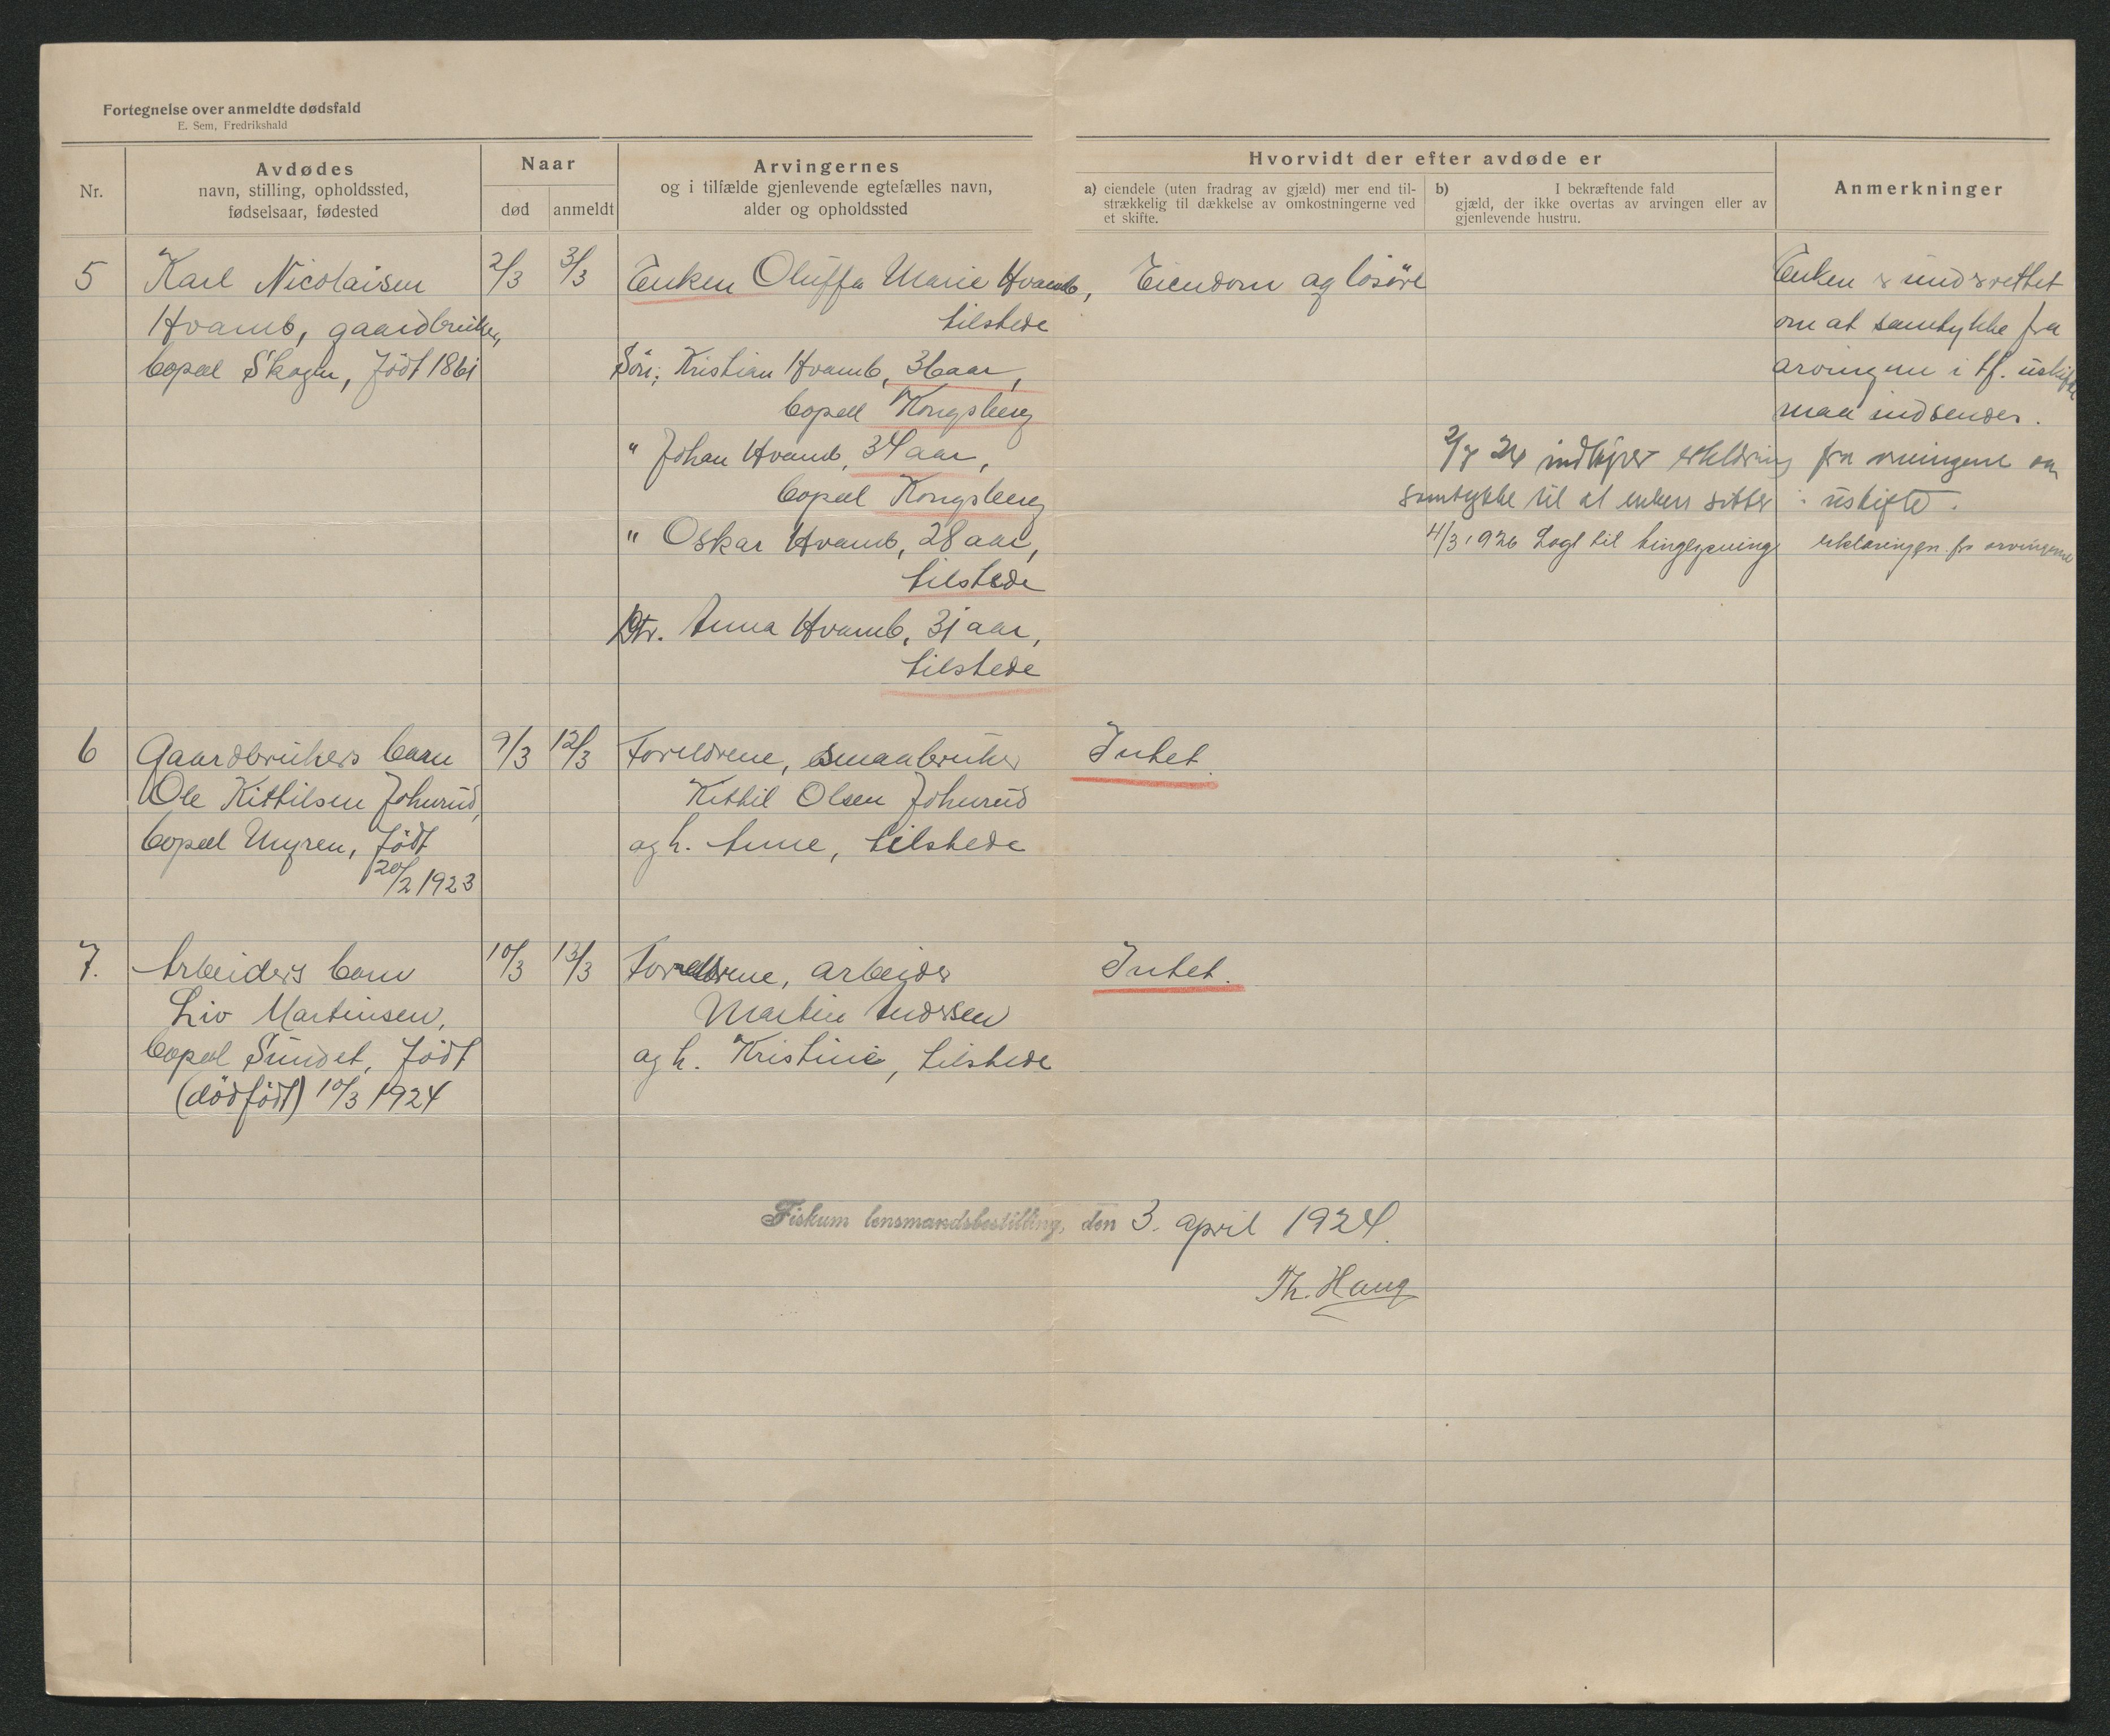 Fortegnelse over anmeldte dødsfald
E. Sem, Fredrikshald
Nr.
Avdødes
navn, stilling, opholdssted,
fødselsaar, fødested
Naar
død
anmeldt
Arvingernes
og i tilfælde gjenlevende egtefælles navn,
alder og opholdssted
Hvorvidt der efter avdøde er
a) eiendele (uten fradrag av gjæld) mer end til-
strækkelig til dækkelse av omkostningerne ved
et skifte.
b) I bekræftende fald
gjæld, der ikke overtas av arvingen eller av
gjenlevende hustru.
Anmerkninger
5
Karl Nicolaisen
Hvamb, gaardbruker,
bopæl Skogen, født 1861
2/3
3/3
Enken Oluffa Marie Hvamb,
tilstede
Sön; Kristian Hvamb, 36 aar,
bopæl Kongsberg
" Johan Hvamb, 34 aar,
bopæl Kongsberg
" Oskar Hvamb, 28 aar,
tilstede
Dtr. Anna Hvamb, 31 aar,
tilstede
Eiendom og løsøre
Enken er underrettet
om at samtykke fra
arvingene i tf. uskifte
maa indsendes.
2/7 24 indløper erklæring fra arvingene om
samtykke til at enken sitter i uskifte.
4/3 1926 Lagt til tinglysning erklæringen fra arvingerne
6
Gaardbrukers barn
Ole Kittilsen Johnrud,
bopæl Myren, født
20/2 1923
9/3
12/3
Foreldrene, smaabruker
Kittil Olsen Johnrud
og h. Anne, tilstede
Intet.
7.
Arbeiders barn
Liv Martinsen,
bopæl Sundet, født
(dödfödt) 10/3 1924
10/3
13/3
Foreldrene, arbeider
Martin Andersen
og h. Kristine, tilstede
Intet.
Fiskum lensmandsbestilling, den 3. april 1924.
Th. Haug